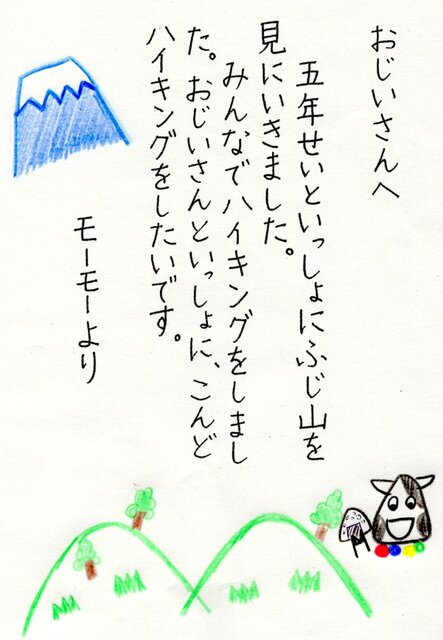 おじいさんへ
五年せいといっしょにふじ山を
見にいきました。
みんなでハイキングをしまし
た。おじいさんといっしょに、こんど
ハイキングをしたいです。
モーモーより